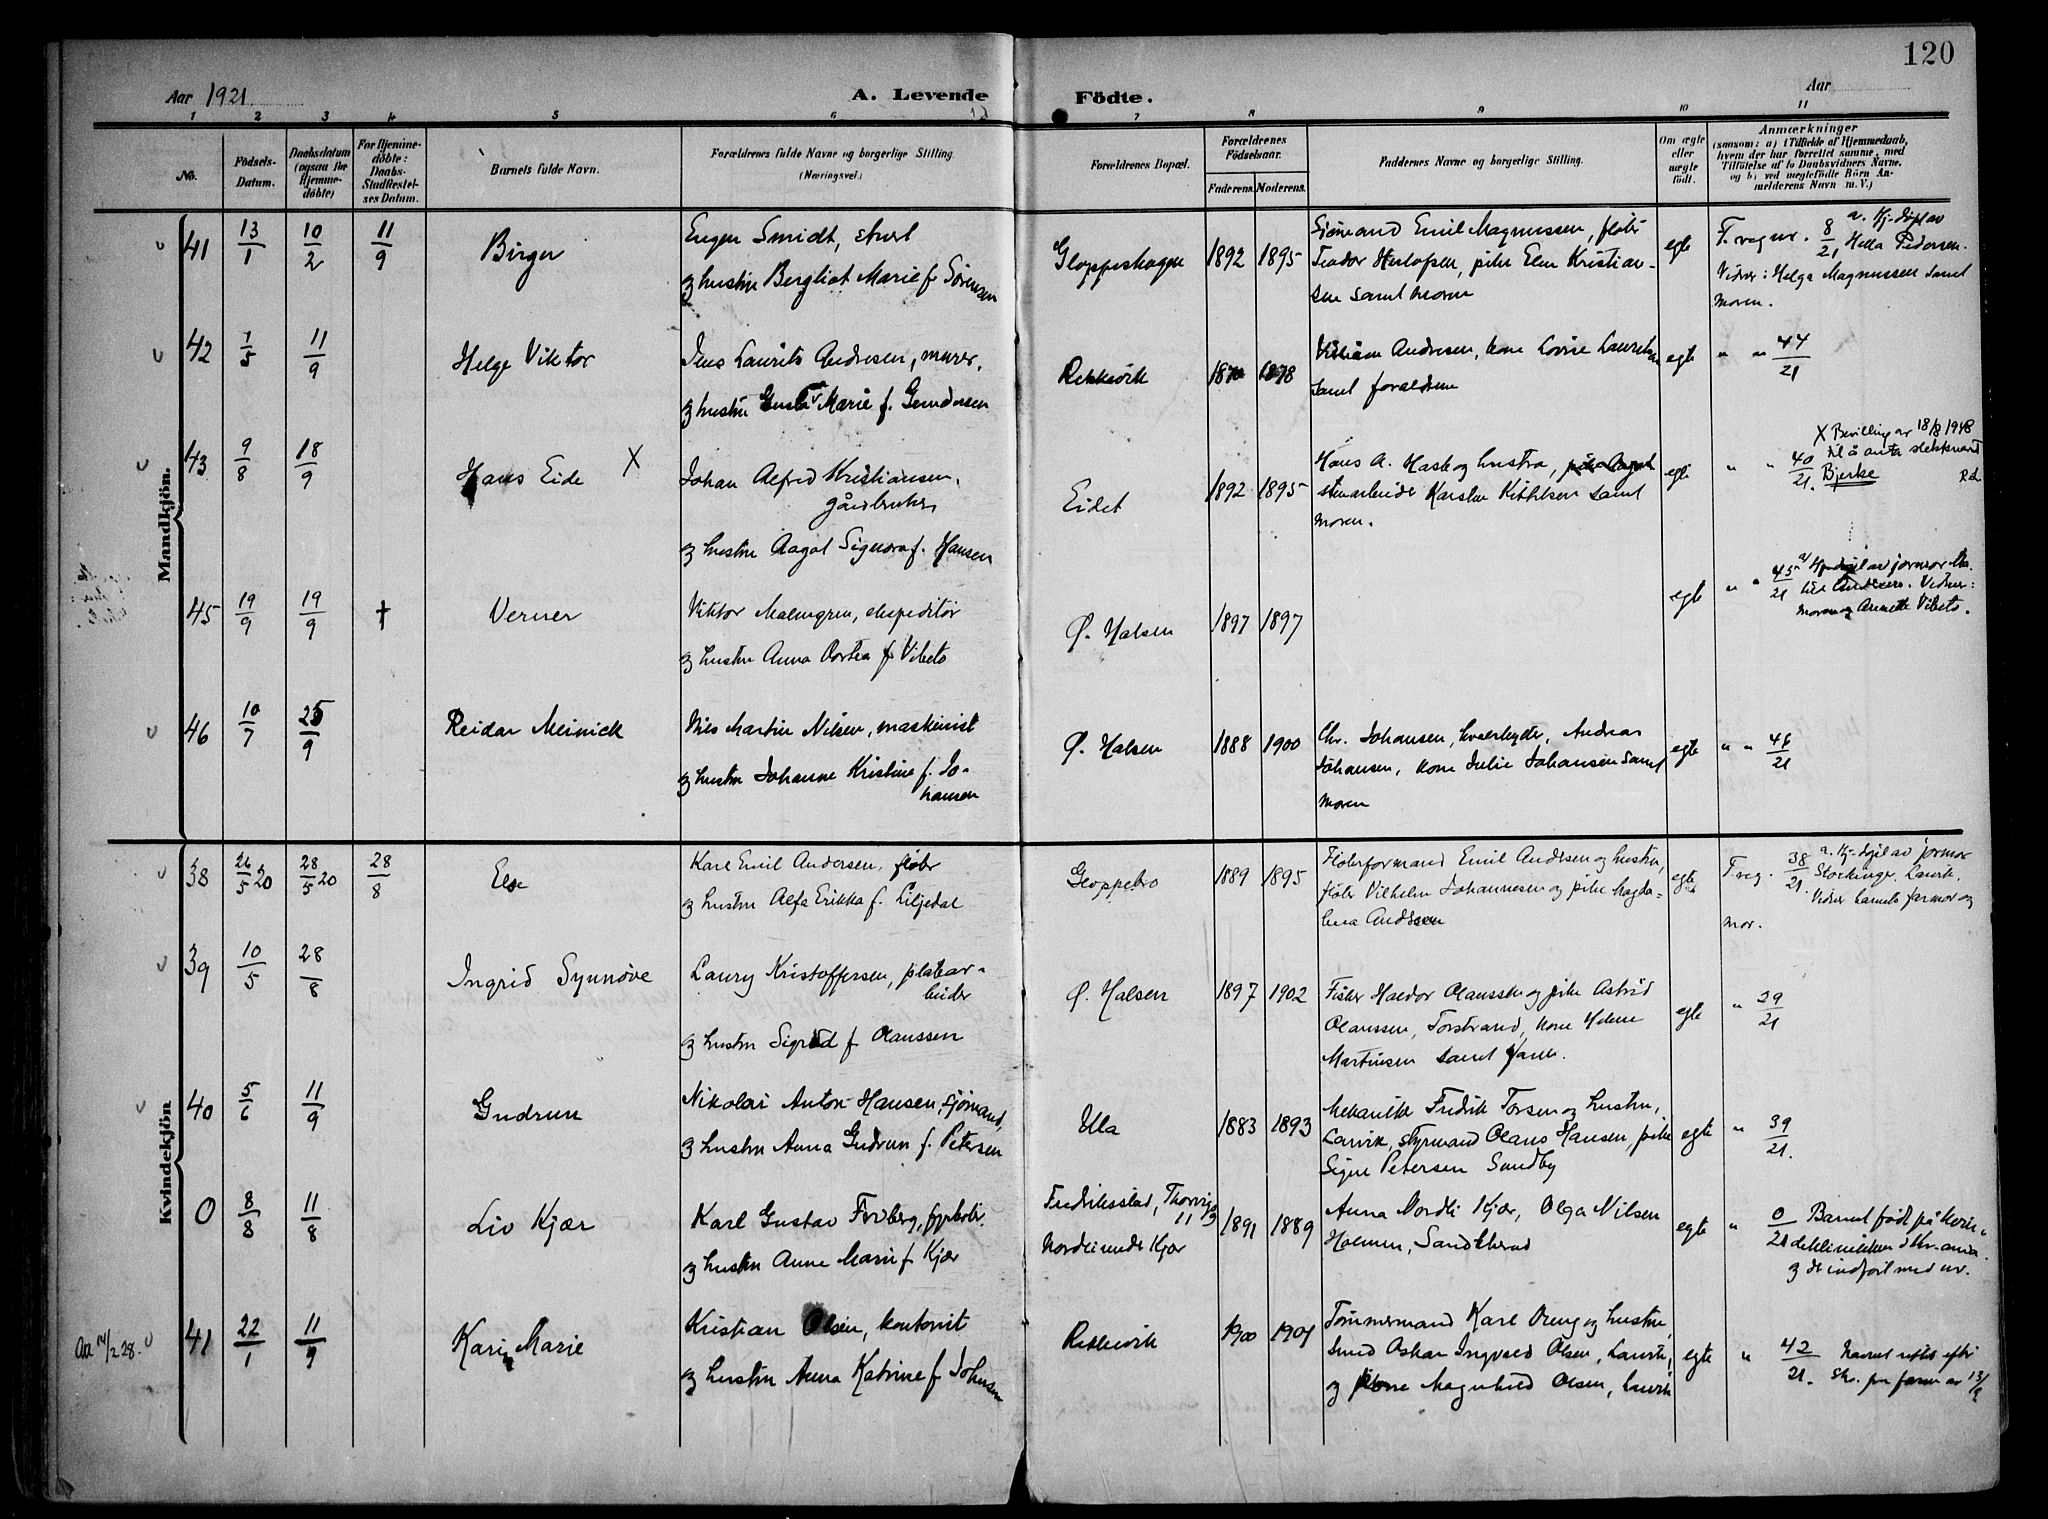 120
Aar 1921
A. Levende
Födte.
Aar
1 2 3 4 5 6 7 8 9 10 11
No.
Födsels-
Datum.
Daabsdatum
(ogsaa for
Hjemme-
döbte)
For Hjemme-
döbte:
Daabs-
Stadfæstel-
ses Datum.
Barnets fulde Navn.
Forældrenes fulde Navne og borgerlige Stilling.
(Næringsvei.)
Forældrenes Bopæl.
Forældrenes
Födselsaar.
Faderens. Moderens.
Faddernes Navne og borgerlige Stilling.
Om ægte
eller
uægte
födt.
Anmærkninger
(saasom: a) i Tilfælde af Hjemmedaab,
hvem der har forrettet samme, med
Tilföielse af to Daabsvidners Navne,
og b) ved uegtefödte Börn An-
melderens Navn m. V.)
Mandkjön.
41 13/1 10/2 11/9 Birger
Eugen Smidt, stuert
og hustru Bergliot Marie f. Sørensen
Gloppeskogen 1892 1895
Sjømand Emil Magnussen, fløter
Teodor, pike Else Kristian-
sen samt moren
egte
T. reg nr. 8/21 a. Hj. døpt av
Hella Pedersen.
Vidner: Helga Magnussen samt
moren.
42 1/5 11/9 Helge Viktor
Jens Laurits Andresen, murer,
og hustru Gusta Marie f. Gundersen
Rekkevik 1878
Andresen, kone Lovise
samt forældrene
egte
" " 44/21
43 9/8 18/9 Hans Eide X
Johan Alfred Kristiansen,
gårdbruker,
og hustru Aagot Signora f. Hansen
Eidet 1892 1895
Hans A. Hask og hustru,
stenarbeider Karsten Kittilsen samt
moren.
egte
" " 40/21.
X Bevilling av 18/8 1948
til å anta slektsnavnet
Bjerke
45 19/9 19/9 † Verner
Viktor Malmgren, ekspeditør
og hustru Anna Dortea f. Vibeto
Ø. Halsen 1897 1897
egte
" " 45/21 a/ Hj. døpt av jormor
Andersen. Vidner:
moren og Annette Vibeto.
46 10/7 25/9 Reidar Meinick
Nils Martin Nilsen, maskinist
og hustru Johanne Kristine f. Jo-
hansen
Ø. Halsen 1888 1900
Chr. Johansen, Andreas
Johansen, kone Julie Johansen samt
moren
egte
" " 46/21
Kvindekjön
38 26/5 20 28/5 20 28/8 Else
Karl Emil Andersen, fløter
og hustru Alfa Erikka f. Liljedal
Gloppebo 1889 1895
Fløterformand Emil Andersen og hustru,
fløter Vilhelm Johannesen og pike Magda-
lena Andersen
egte
T. reg. 38/21. a. Hj. døpt av jormor
Stockinger, Larvik.
Vidner barnets farmor og
mor.
39 10/5 28/8 Ingrid Synnøve
Laury Kristoffersen, platear-
beider
og hustru Sigrid f. Olaussen
Ø. Halsen 1897 1902
Fisker Haldor Olaussen og pike Astrid
Olaussen, Torstrand, kone Helene
Martinsen samt faren.
egte
" 39/21
40 5/6 11/9 Gudrun
Nikolai Anton Hansen, sjømand,
og hustru Anna Gudrun f. Petersen
Ula 1883 1893
Mekaniker Fredrik Torsen og hustru,
Larvik, styrmand Olaus Hansen, pike
Signe Petersen Sundby
egte
" 39/21.
0 8/8 11/8 Liv Kjær
Karl Gustav Froberg, fyrbøter
og hustru Anne Marie f. Kjær
Fredriksstad,
Nordli nedr Kjær
1891 1889
Anna Nordli Kjær, Olga Nilsen
Holmen, Sandeherred
egte
" 0/21 Barnet født på kvin-
deklinikken i Kr.ania
og der indført med nr.
Aa 14/2 28. 41 22/1 11/9 Kari Marie
Kristian Olsen, kontorist
og hustru Anna Katrine f. Johnsen
Rekkevik 1900 1901
Tømmermand Karl Oreng og hustru,
Smed Oskar Ingvald Olsen, Larvik,
og kone Magnhild Olsen, Larvik
egte
" 42/21. Navnet rettet efter
skr. fra faren av 13/9